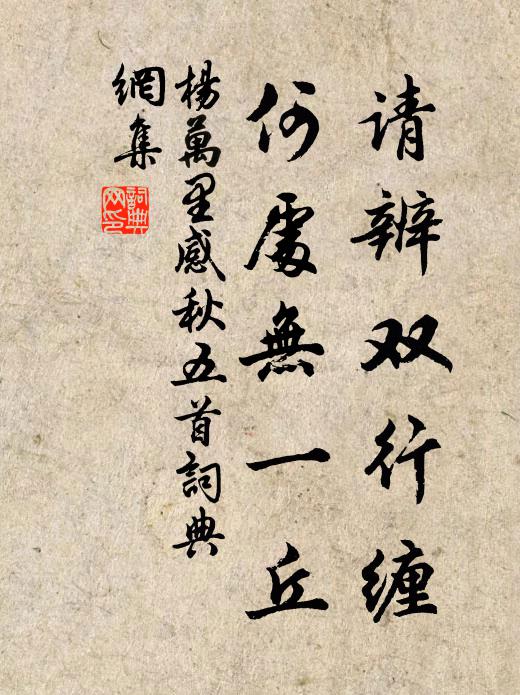 请辨双行缠
何處無一丘
楊萬里感秋五首詞典
網集
詞典
网印